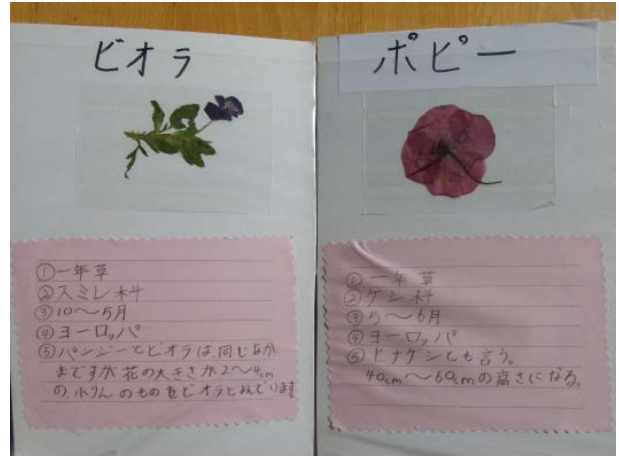 ビオラ
①一年草
②スミレ科
③10～5月
④ヨーロッパ
⑤パンジーとビオラは、同じなか
まですが花の大きさが2～4cm
の、小りんのものをビオラとよんでいます
ポピー
①一年草
②ケシ科
③5～6月
④ヨーロッパ
⑤ヒナゲシとも言う。
40cm～60cmの高さになる。